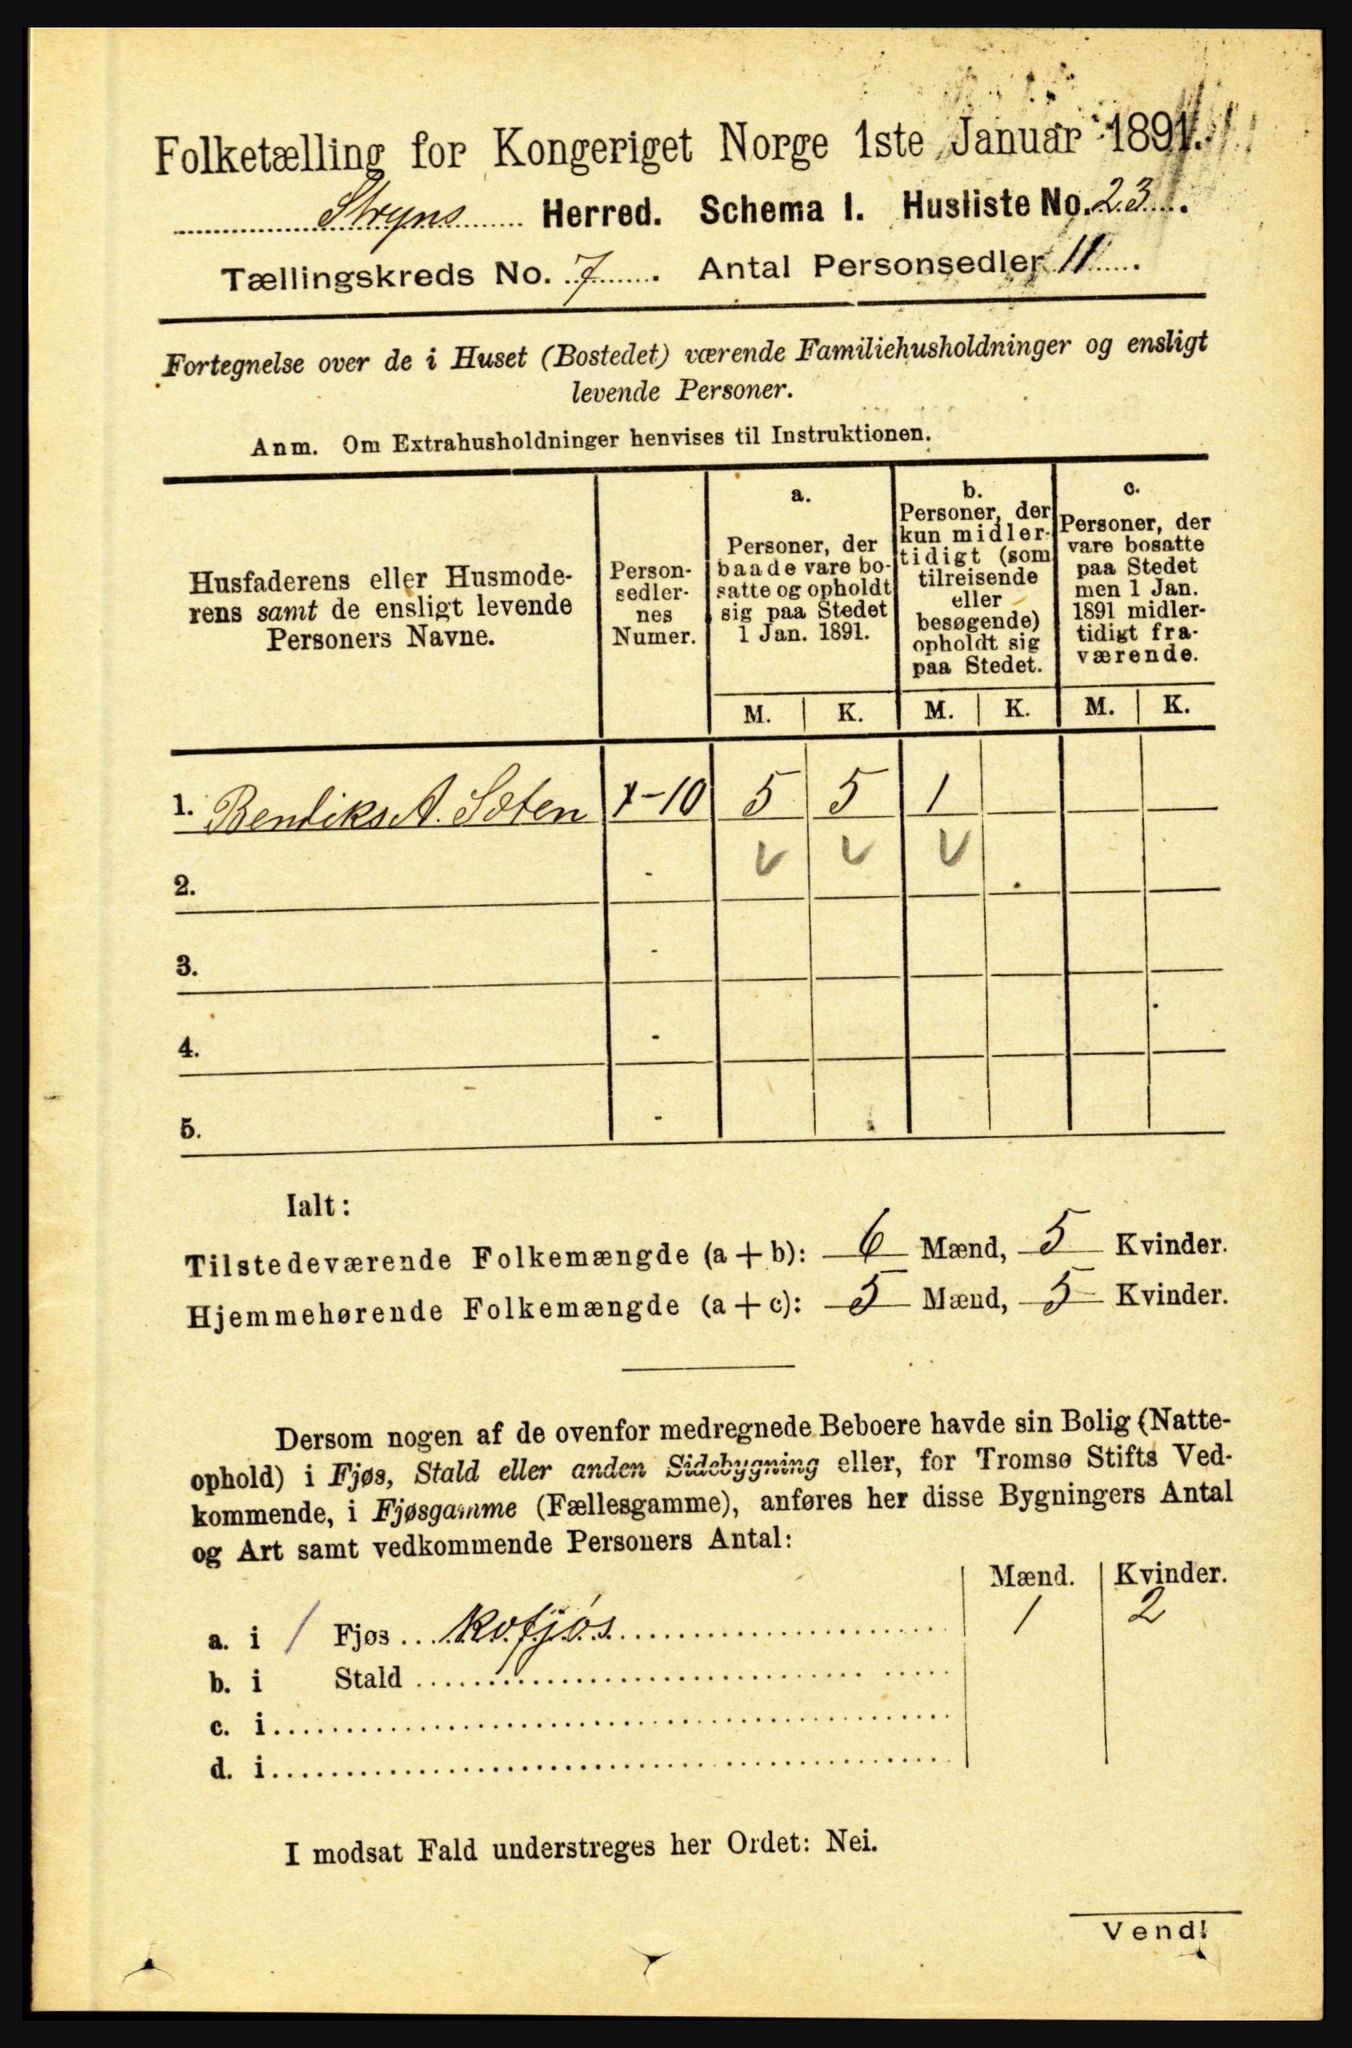 Folketælling for Kongeriget Norge 1ste Januar 1891.
Stryns Herred. Schema I. Husliste No. 23.
Tællingskreds No. 7. Antal Personsedler 11.
Fortegnelse over de i Huset (Bostedet) værende Familiehusholdninger og ensligt
levende Personer.
Anm. Om Extrahusholdninger henvises til Instruktionen.
Husfaderens eller Husmode-
rens samt de ensligt levende
Personers Navne.
Person-
sedler-
nes
Numer.
a.
Personer, der
baade vare bo-
satte og opholdt
sig paa Stedet
1 Jan. 1891.
b.
Personer, der
kun midler-
tidigt (som
tilreisende
eller
besøgende)
opholdt sig
paa Stedet.
c.
Personer, der
vare bosatte
paa Stedet
men 1 Jan.
1891 midler-
tidigt fra-
værende.
M. K. M. K. M. K.
1. Bendiks A. Sæten 1-10 5 5 1
2. - V V V
3. -
4. -
5. -
Ialt:
Tilstedeværende Folkemængde (a + b): 6 Mænd, 5 Kvinder.
Hjemmehørende Folkemængde (a + c): 5 Mænd, 5 Kvinder.
Dersom nogen af de ovenfor medregnede Beboere havde sin Bolig (Natte-
ophold) i Fjøs, Stald eller anden Sidebygning eller, for Tromsø Stifts Ved-
kommende, i Fjøsgamme (Fællesgamme), anføres her disse Bygningers Antal
og Art samt vedkommende Personers Antal:
Mænd. Kvinder.
a. i 1 Fjøs Kofjøs 1 2
b. i Stald
c. i
d. i
I modsat Fald understreges her Ordet: Nei.
Vend!